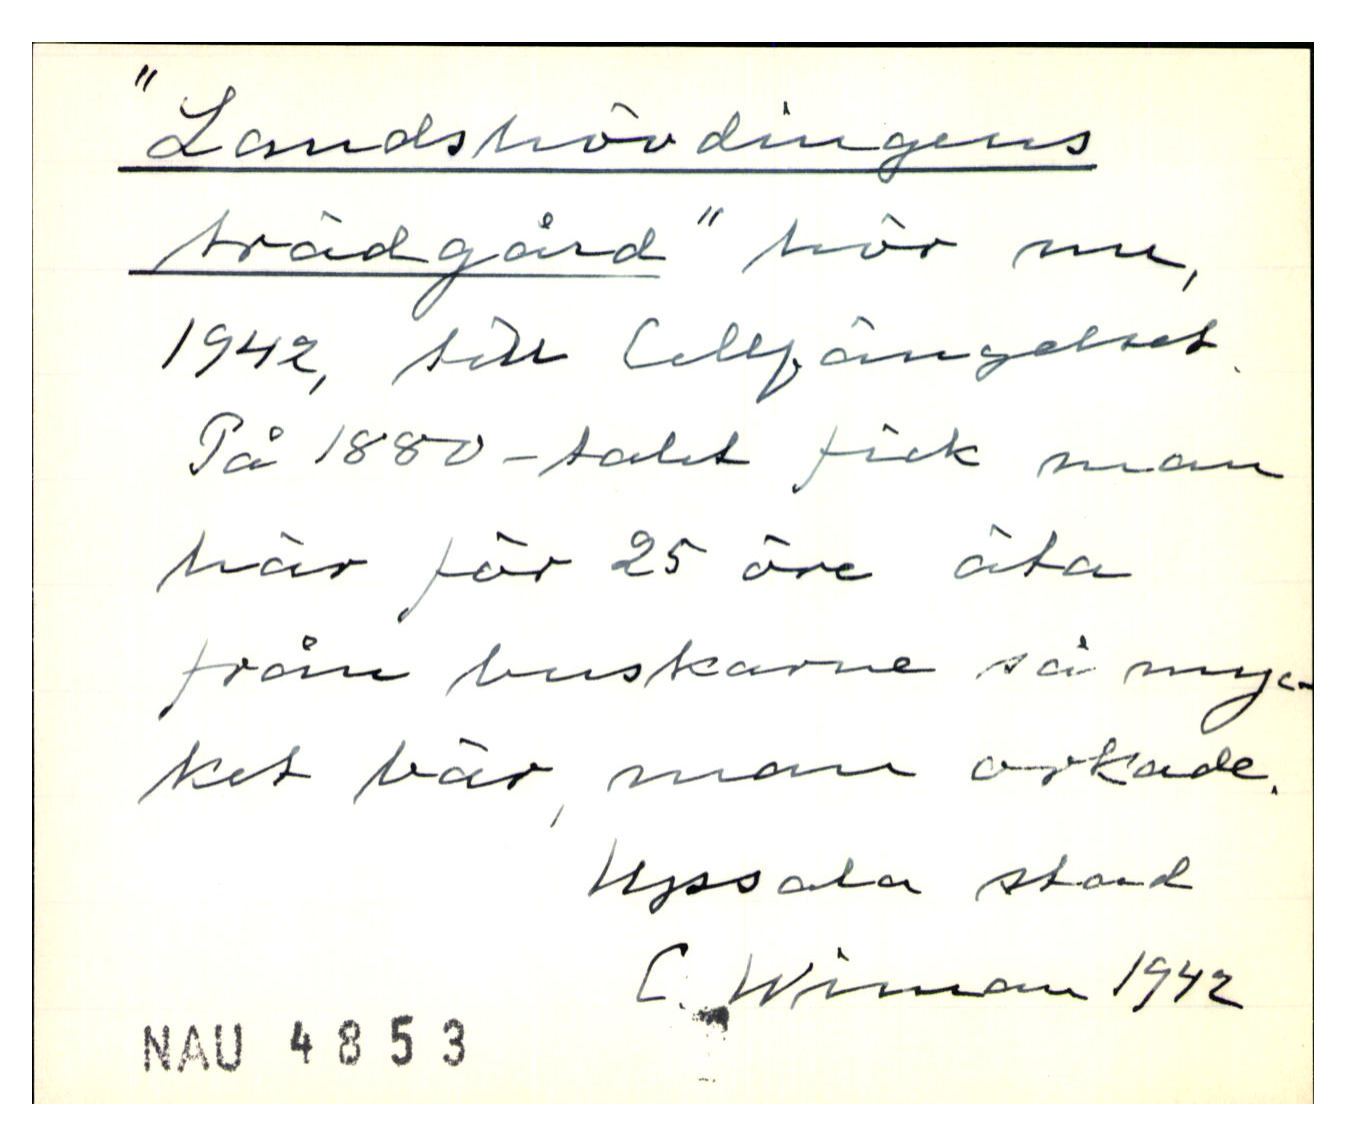 "Landshövdingens
trädgård" hör nu,
1942, till Cellfängelset.
På 1880-talet fick man
här för 25 öre äta
från buskarne så myc-
ket bär, man orkade.
Uppsala stad
C. Wiman 1942
NAU 4853